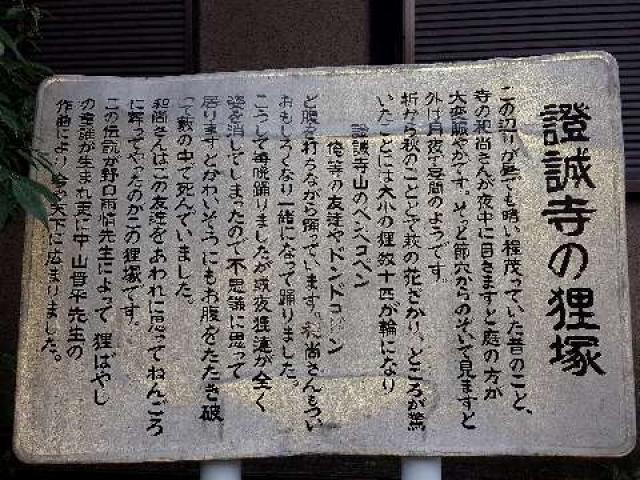 證誠寺の狸塚
この辺りが昼でも暗い程茂っていた昔のこと、
寺の和尚さんが夜中に目さますと庭の方が
大変賑やかです。そっと節穴からのぞいて見ますと
外は月夜で昼間のようです。
折から秋のこととて萩の花ざかり、ところが驚
いたことには大小の狸数十匹が輪になり
證誠寺山のペンペコペン
俺等の友達やドンドコドン
と腹を打ちながら踊っています。和尚さんもつい
おもしろくなり一緒になって踊りました。
こうして毎晩踊りましたが数夜狸達が全く
姿を消してしまったので不思議に思って
居りますとかわいそうにもお腹をたたき破
って藪の中で死んでいました。
和尚さんはこの友達をあわれに思ってねんごろ
に葬ってやったのがこの狸塚です。
この伝説が野口雨情先生によって狸ばやし
の童謡が生まれ更に中山晋平先生の
作曲により今や天下に広まりました。